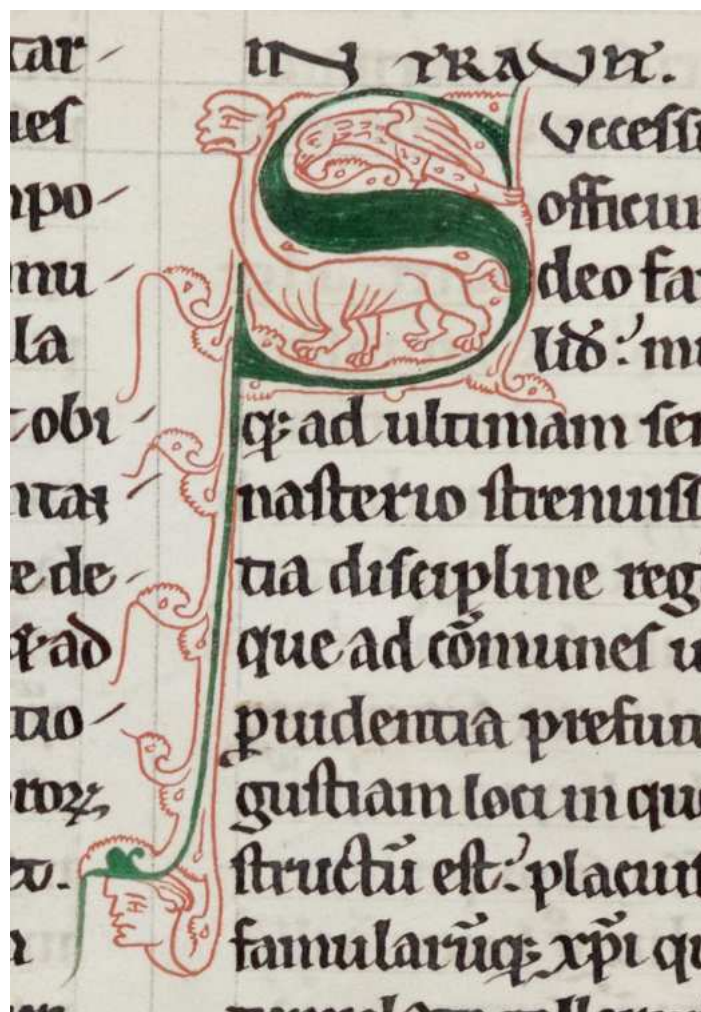 tar
nes
npo
mu
la
tobi
ntaꝝ
e de
ꝗ ad
tio
roꝝ
IN TRAVIT.
S
vccessi
officiu
deo fa
lið: mi
qꝫ ad ultimam ser
nasterio strenuiss
tia discipline reg
que ad cōmunes u
ꝑuidentia prefun
gustiam loci in quo
structū est: placuit
famularūqꝫ xp̄i qu